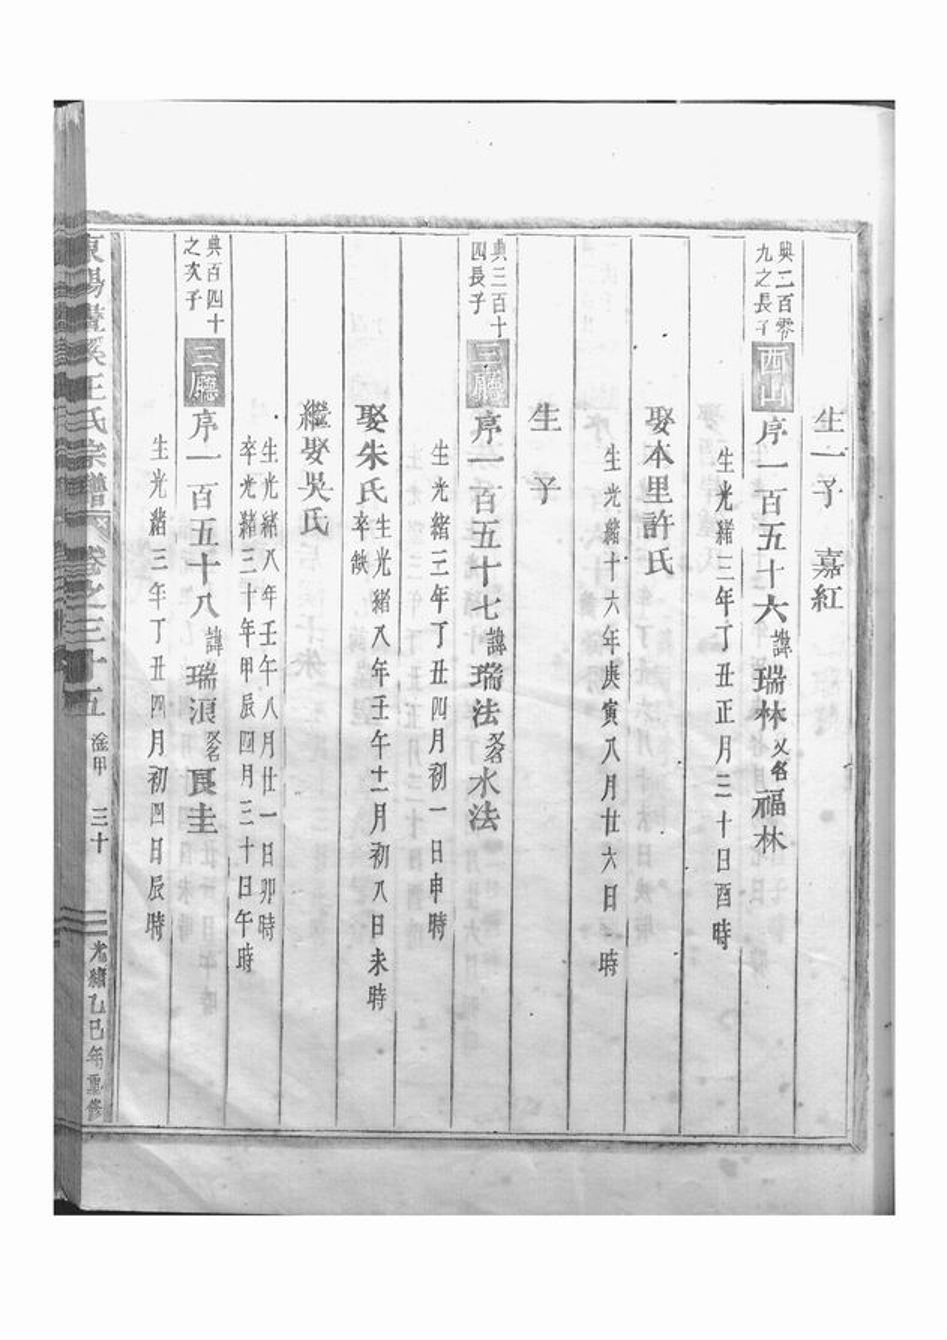 生一子 嘉紅
興二百零
九之長子
西山 序一百五十六 諱 瑞林 又名 福林
生光緒三年丁丑正月三十日酉時
娶本里許氏
生光緒十六年庚寅八月廿六日 時
生 子
興三百十
四長子
三廳 序一百五十七 諱 瑞法 又名 水法
生光緒三年丁丑四月初一日申時
娶朱氏
生光緒八年壬午十二月初八日未時
卒缺
繼娶吳氏
生光緒八年壬午八月廿一日卯時
卒光緒三十年甲辰四月三十日午時
典百四十
之次子
三廳 序一百五十八 諱 瑞浪 又名 長圭
生光緒三年丁丑四月初四日辰時
東陽 溪王氏宗譜 卷之三十五 淦甲 三十 光緒乙巳年重修